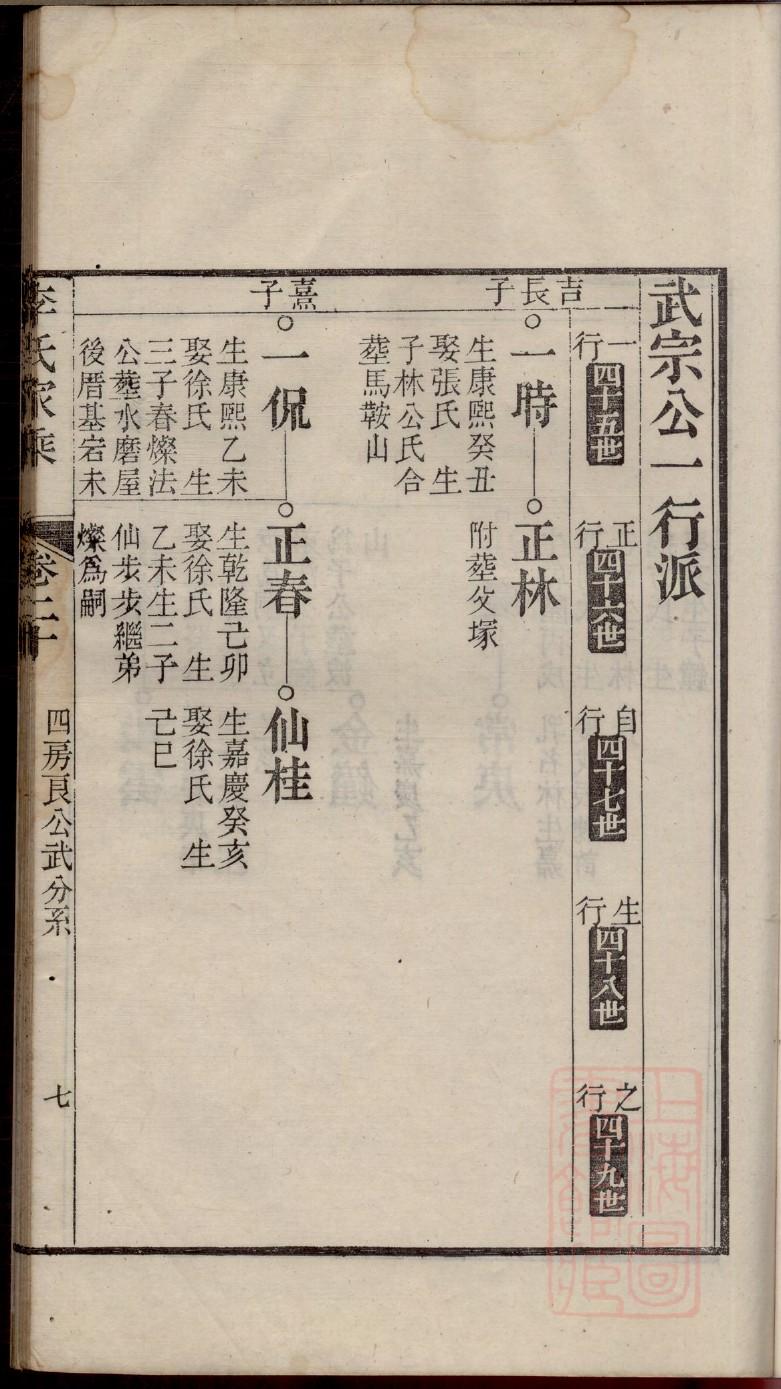 武宗公一行派
一行 四十五世
正行 四十六世
自行 四十七世
生行 四十八世
之行 四十九世
吉長子
一時
生康熙癸丑
娶張氏 生
子林公氏合
塟馬鞍山
正林
附塟父塚
熹子
一侃
生康熙乙未
娶徐氏 生
三子春燦法
公塟水磨屋
後厝基宕未
正春
生乾隆己卯
娶徐氏 生
乙未生二子
仙步步繼弟
燦爲嗣
仙桂
生嘉慶癸亥
娶徐氏 生
己巳
李氏家乘
卷二十
四房良公武分系
七